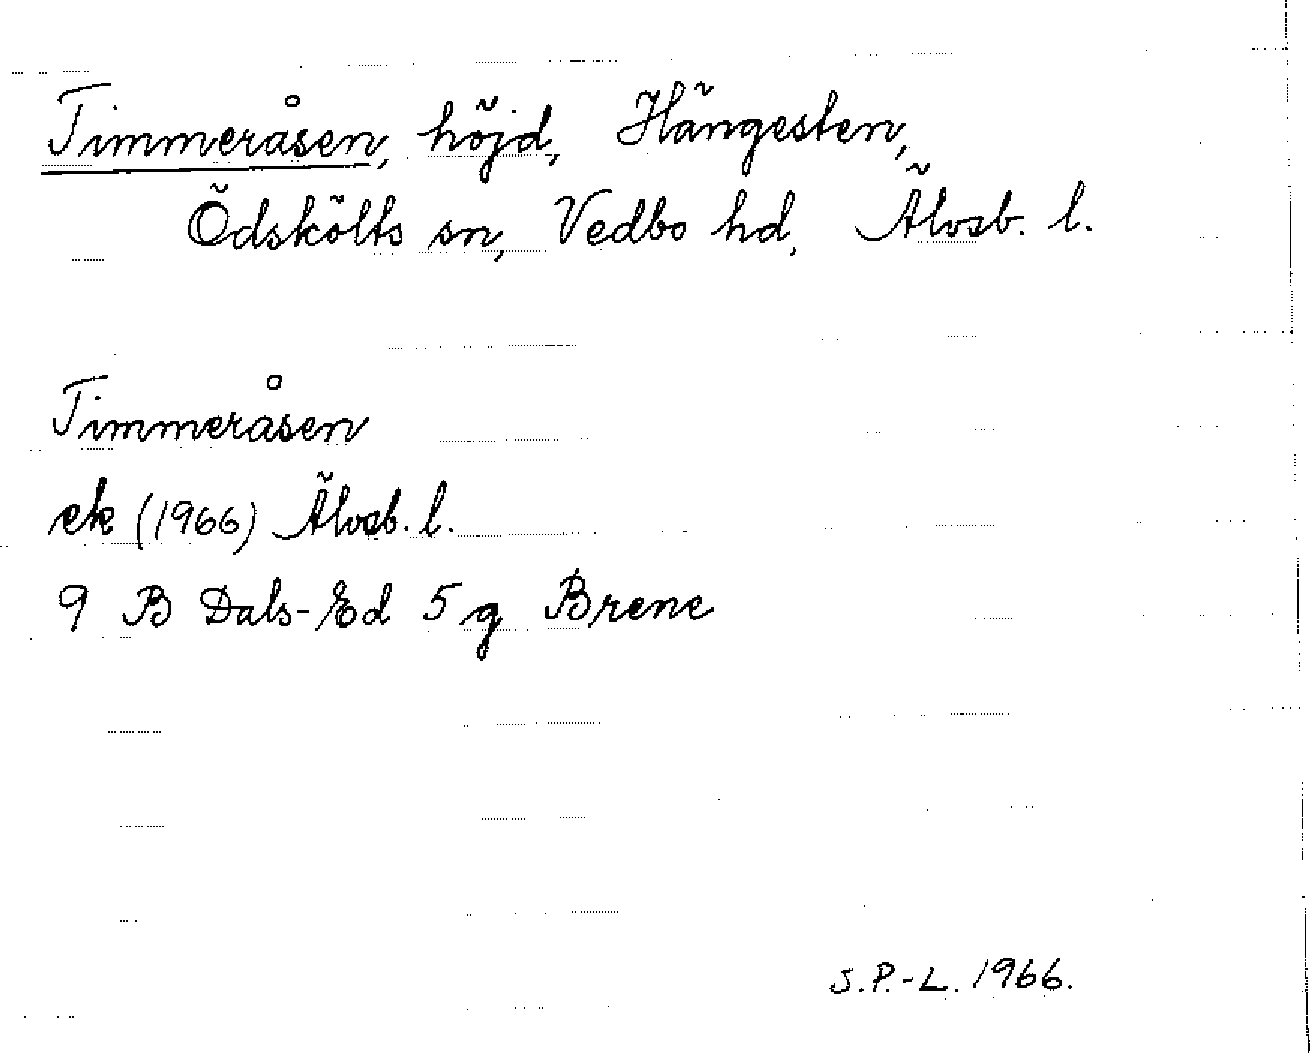 Timmeråsen, höjd, Hängesten,
Ödskölts sn, Vedbo hd, Älvsb. l.
Timmeråsen
ek (1966) Älvsb. l.
9 B Dals-Ed 5 g Brene
S.P.-L. 1966.